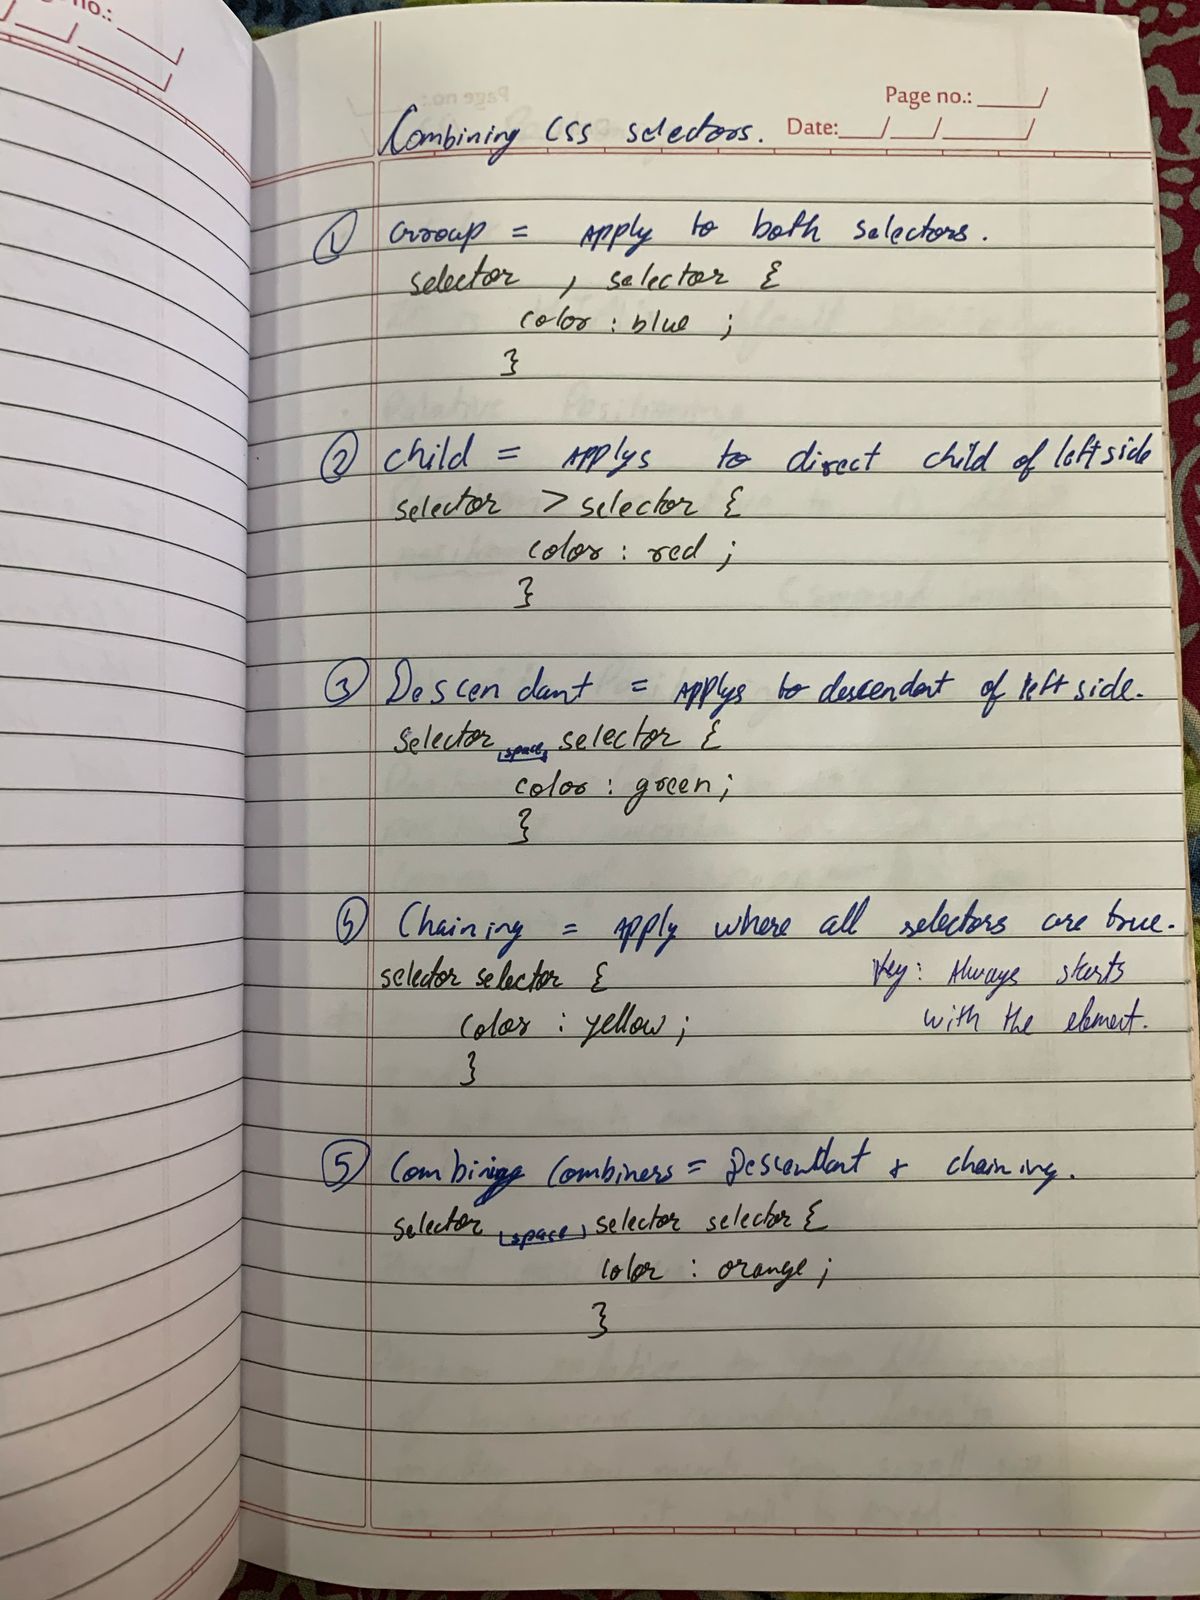 no.:
Page no.:
Combining CSS selectors. Date:
1 Group = Apply to both selectors.
selector , selector {
color : blue ;
}
2 child = Applys to direct child of left side
selector > selector {
color : red ;
}
3 Descendant = Applys to descendent of left side.
selector space selector {
color : green ;
}
4 Chaining = Apply where all selectors are true.
selector selector { key : Always starts
color : yellow ; with the element.
}
5 Combining Combiners = Descendant + chaining.
selector space selector selector {
color : orange ;
}